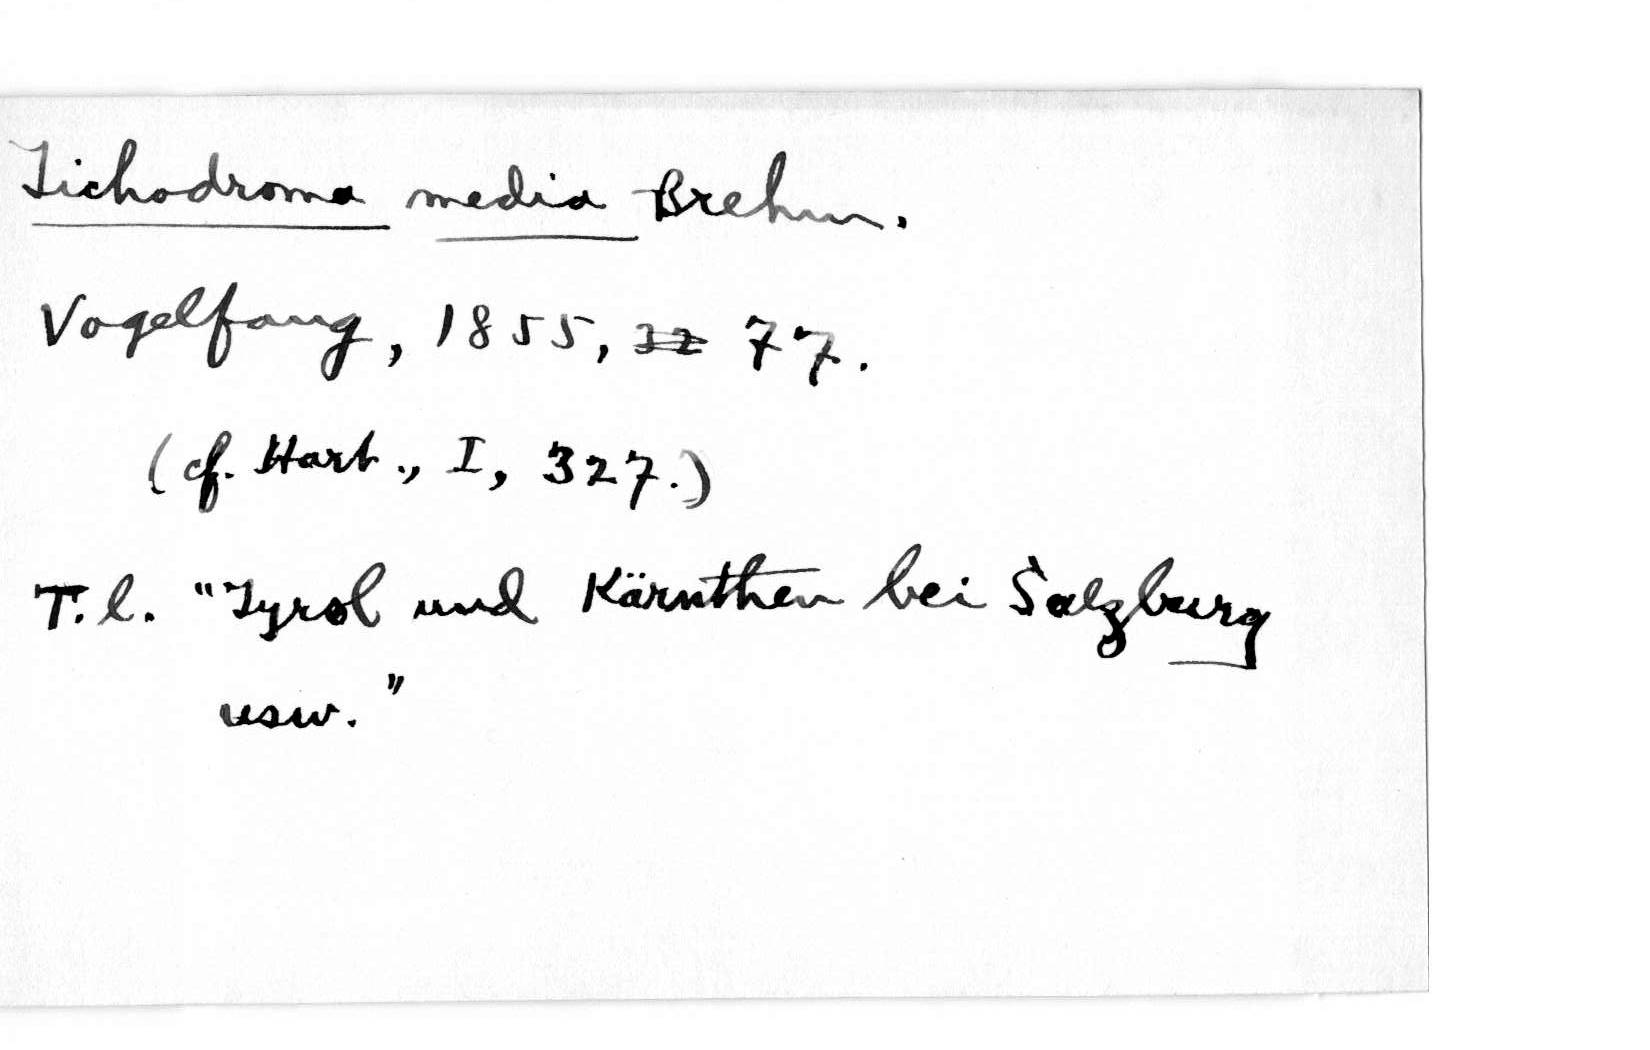 Tichodroma media Brehm.
Vogelfang, 1855, 32 77.
(cf. Hart., I, 327.)
T. l. "Tyrol und Kärnthen bei Salzburg
usw."